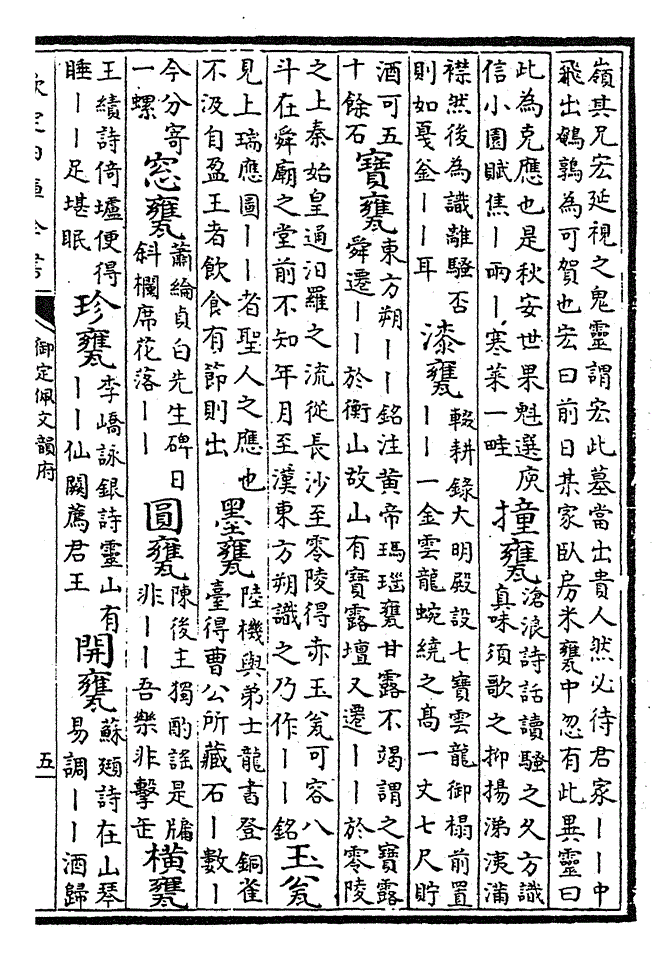 嶺其兄宏延視之鬼靈謂宏此墓當出貴人然必待君家丨丨中
飛出鵓鶉為可賀也宏曰前日某家臥房米甕中忽有此異靈曰
此為克應也是秋安世果魁選庾
信小園賦焦丨兩丨寒菜一畦
撞甕
滄浪詩話讀騷之久方識
真味須歌之抑揚涕洟滿
襟然後為識離騷否
則如戛釜丨丨耳
漆甕
輟耕錄大明殿設七寶雲龍御榻前置
丨丨一金雲龍蜿繞之高一丈七尺貯
酒可五
十餘石
寶甕
東方朔丨丨銘注黄帝瑪瑙甕甘露不竭謂之寶露
舜遷丨丨於衡山故山有寶露壇又遷丨丨於零陵
之上秦始皇通汨羅之流從長沙至零陵得赤玉瓮可容八
斗在舜廟之堂前不知年月至漢東方朔識之乃作丨丨銘
玉瓮
見上瑞應圖丨丨者聖人之應也
不汲自盈王者飲食有節則出
墨甕
陸機與弟士龍書登銅雀
臺得曹公所藏石丨數丨
今分寄
一螺
窓甕
蕭綸貞白先生碑日
斜欄席花落丨丨
圓甕
陳後主獨酌謠是牖
非丨丨吾樂非擊缶
橫甕
王績詩倚壚便得
睡丨丨足堪眠
珍甕
李嶠詠銀詩靈山有
丨丨仙闕薦君王
開甕
蘇頲詩在山琴
易調丨丨酒歸
御定佩文韻府
五